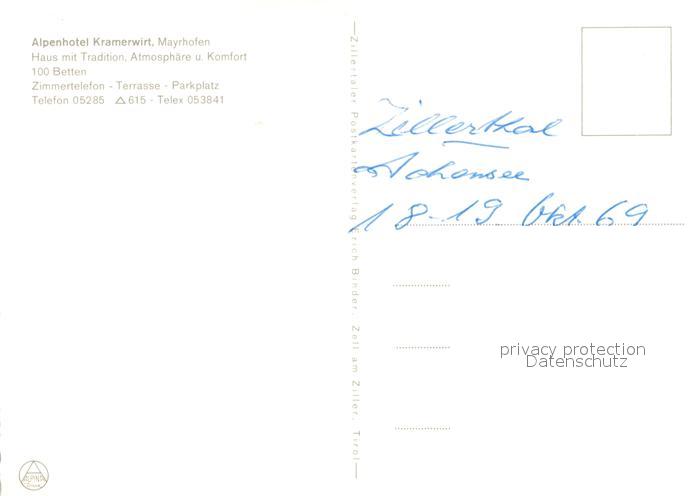 Alpenhotel Kramerwirt, Mayrhofen
Haus mit Tradition, Atmosphäre u. Komfort
100 Betten
Zimmertelefon - Terrasse - Parkplatz
Telefon 05285 △ 615 - Telex 053841
Zillertaler Postkartenverlag Erich Binder, Zell am Ziller, Tirol
Zillerthal
Achensee
18-19 Okt. 69
privacy protection
Datenschutz
ALPINA